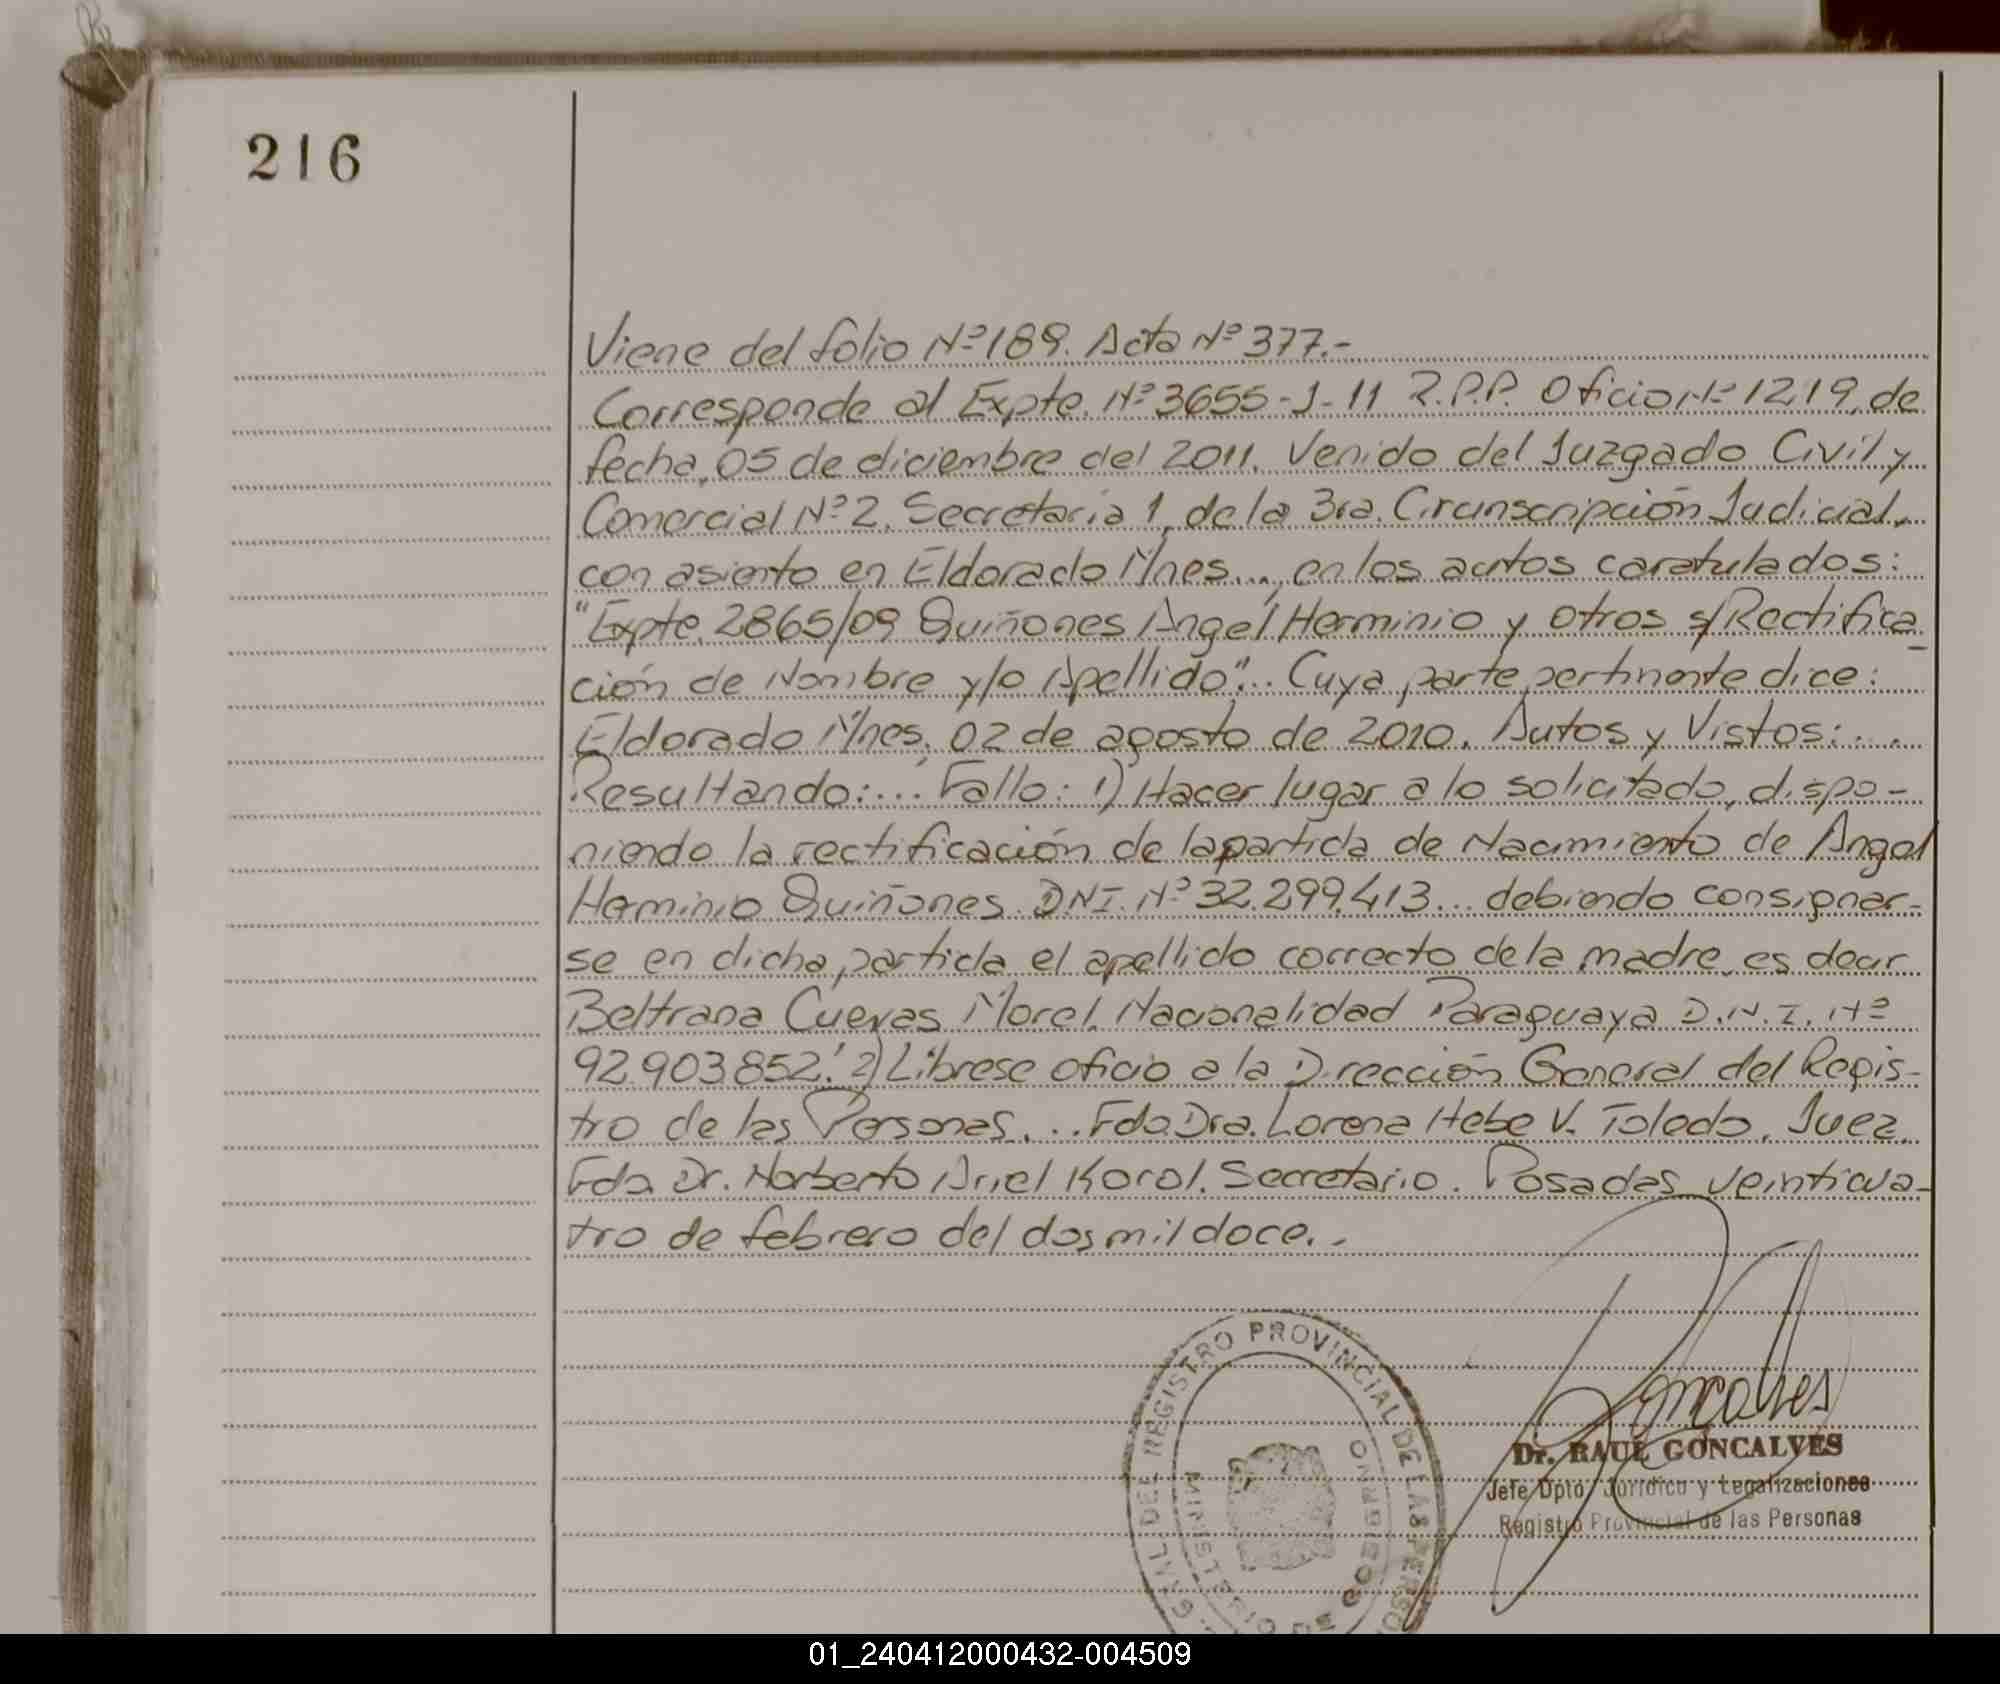 216
Viene del folio Nº 189. Acta Nº 377.-
Corresponde al Expte. Nº 3655-J-11 R.P.P. Oficio Nº 1219, de
fecha, 05 de diciembre del 2011. Venido del Juzgado Civil y
Comercial Nº 2. Secretaría 1, de la 3ra. Circunscripción Judicial,
con asiento en Eldorado Mnes..., en los autos caratulados:
"Expte. 2865/09 Quiñones Angel Herminio y otros s/Rectifica_
ción de Nombre y/o Apellido"... Cuya parte pertinente dice:
Eldorado Mnes, 02 de agosto de 2010. Autos y Vistos:....
Resultando:... Fallo: 1) Hacer lugar a lo solicitado, dispo-
niendo la rectificación de la partida de Nacimiento de Angel
Herminio Quiñones. D.N.I. Nº 32.299.413... debiendo consignar-
se en dicha partida el apellido correcto de la madre, es decir
Beltrana Cuevas Morel, Nacionalidad Paraguaya D.N.I. Nº
92.903.852". 2) Líbrese oficio a la Dirección General del Regis-
tro de las Personas. ... Fdo. Dra. Lorena Hebe V. Toledo. Juez.
Fdo. Dr. Norberto Ariel Korol. Secretario. Posadas veinticua-
tro de febrero del dos mil doce..
Goncalves
Dr. RAUL GONCALVES
Jefe Dpto. Jurídico y Legalizaciones
Registro Provincial de las Personas
GRAL DEL REGISTRO PROVINCIAL DE LAS PERSO
MINISTERIO DE GOBIERNO
01_240412000432-004509